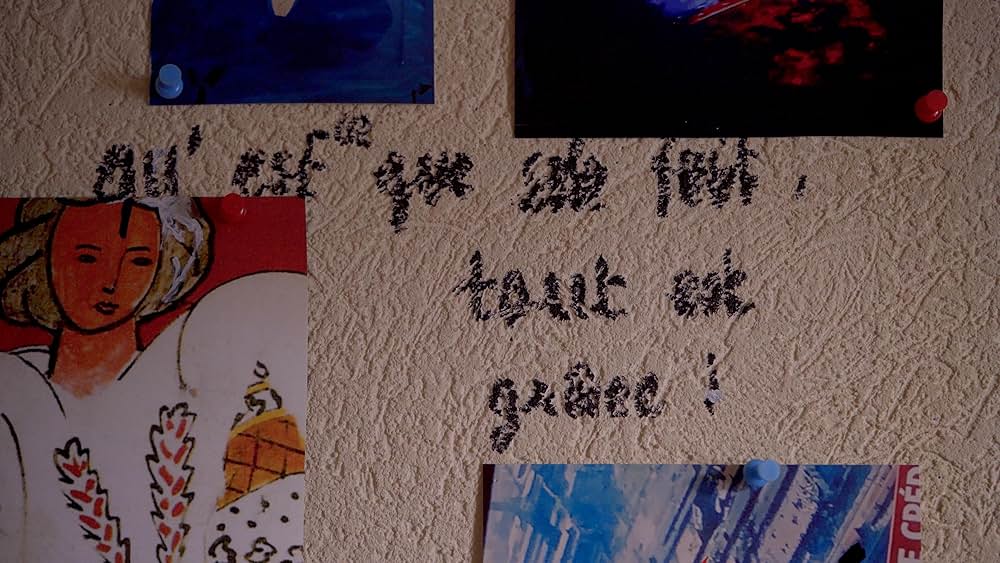 qu' est ce que cela fait ,
tout est
grâce !